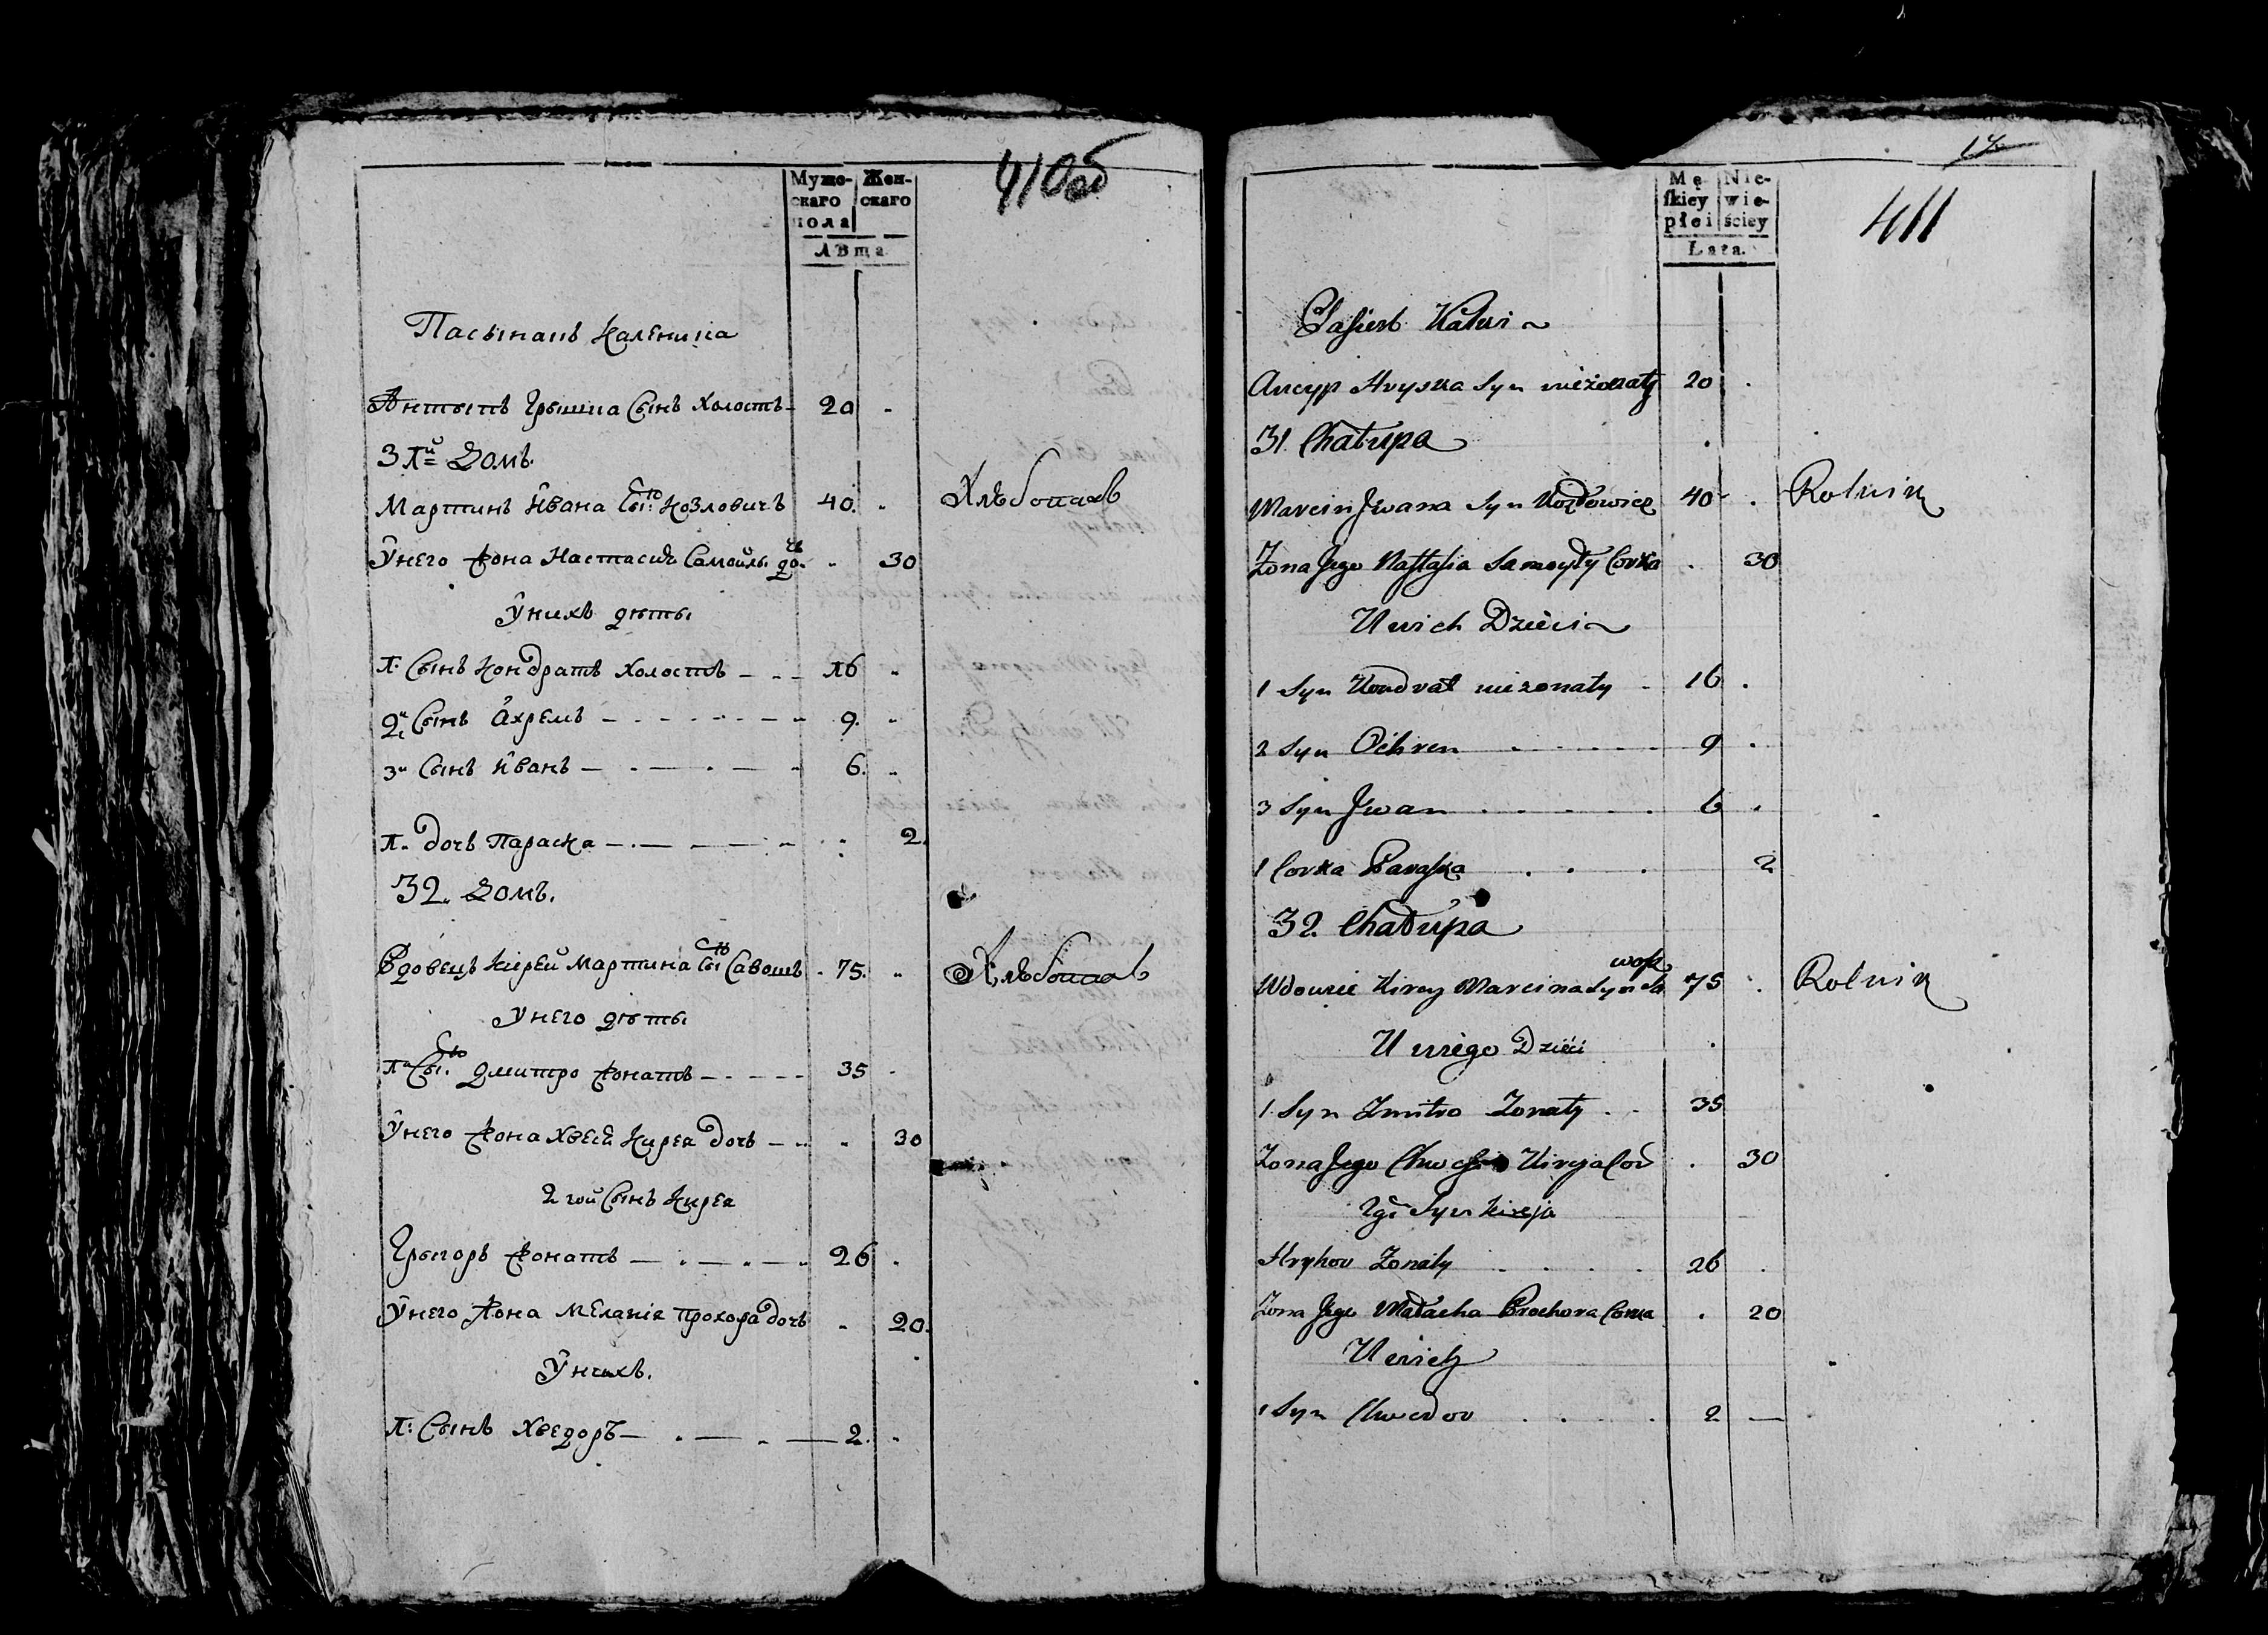 Мужескаго пола
Женскаго
Лѣта
410об
Пасынапъ Каленика
Антыпъ Грышка Сынъ Холостъ 20
31й Домъ
Мартинъ Ивана Сынъ Козловичъ 40. Хлѣбопашецъ
Унего жона Настасия Самойлы дочь 30
Унихъ дѣты
1. Сынъ Кондратъ Холостъ 16
2й Сынъ Ахремъ 9.
3й Сынъ Иванъ 6.
1я дочь Параска 2.
32. Домъ.
Вдовецъ Кирей Мартина Сынъ Савошъ 75.
Унего дѣты
1й Сынъ Дмитро жонатъ 35
Унего жона Хвеся Кирея дочь 30
2гой Сынъ Кирея
Грыгоръ жонатъ 26
Унего жона Меланія Прохора дочь 20.
Унихъ.
1: Сынъ Хведоръ 2.
Męſkiey płci
Niewieściey
Lata.
17
411
Pasierb Kaleni
Ancyp Hryszka Syn nieżonaty 20
31 Chałupa
Marcin Jwana Syn Kozłowicz 40 Rolnik
Zona Jego Nastasia Samoyły Corka 30
U nich Dzieci
1 Syn Kondrat nieżonaty 16
2 Syn Ochrem 9
3 Syn Jwan 6
1 Corka Paraska 2
32 Chałupa
Wdowiec Kirey Marcina Syn Sawosz 75 Rolnik
U niego Dzieci
1 Syn Zmitro Zonaty 35
Zona Jego Chwesia Kireja Cor 30
2gi Syn Kireja
Hryhor Zonaty 26
Zona Jego Małacha Prochora Corka 20
U nich
1 Syn Chwedor 2